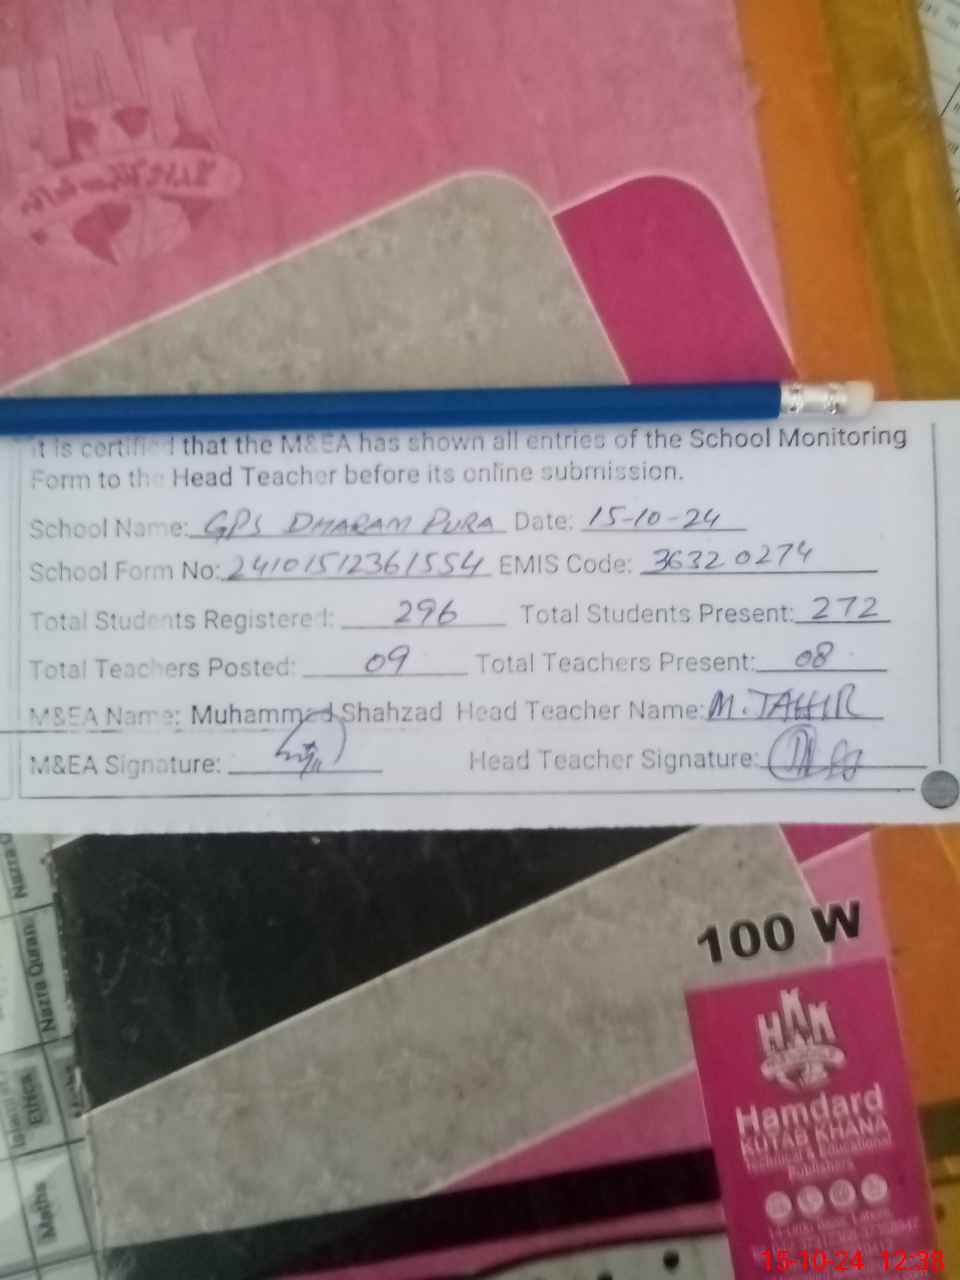 it is certified that the M&EA has shown all entries of the School Monitoring
Form to the Head Teacher before its online submission.
School Name: GPS DHARAM PURA Date: 15-10-24
School Form No: 24101512361554 EMIS Code: 36320274
Total Students Registered: 296 Total Students Present: 272
Total Teachers Posted: 09 Total Teachers Present: 08
M&EA Name: Muhammad Shahzad Head Teacher Name: M. TAHIR
M&EA Signature: Head Teacher Signature:
Nazra Quran
Ethics
Maths
100 W
HKK
Hamdard
KUTAB KHANA
Technical & Educational
Publishers
15-10-24 12:38